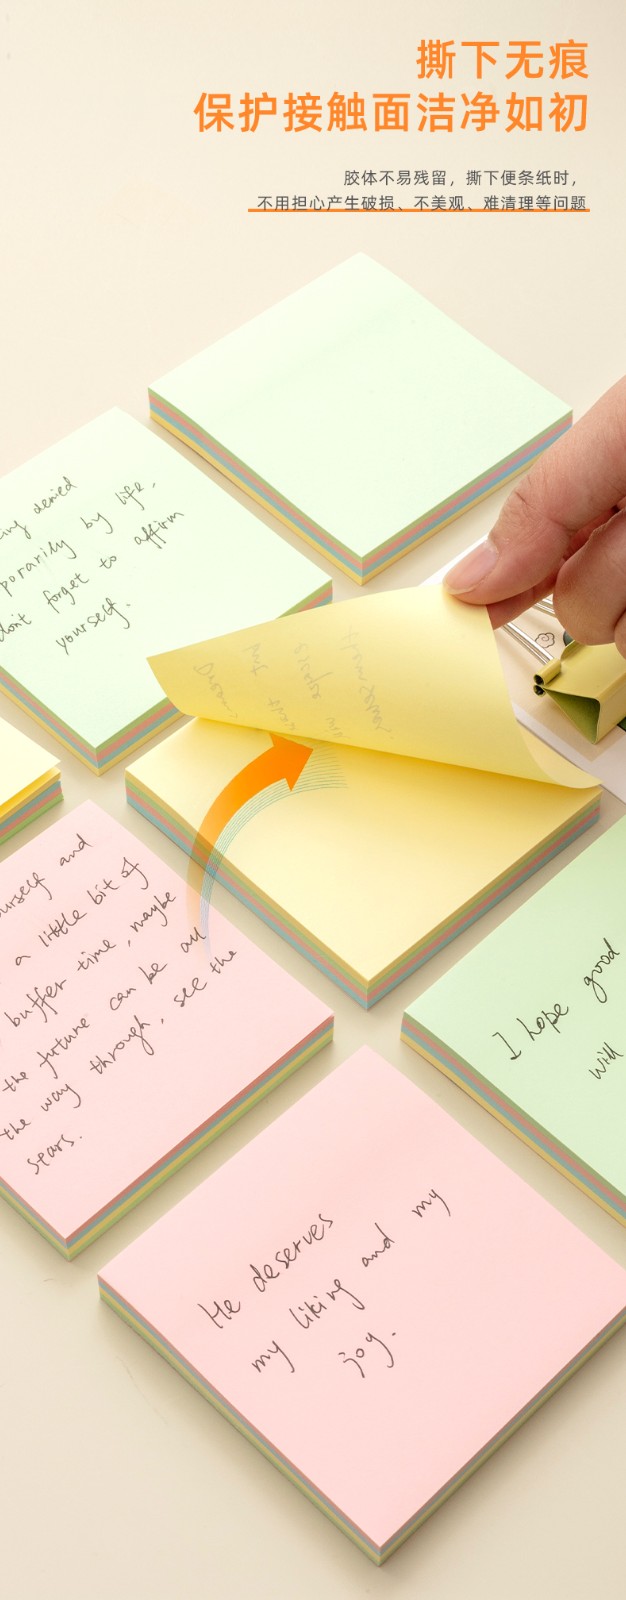 撕下无痕
保护接触面洁净如初
胶体不易残留，撕下便条纸时，
不用担心产生破损、不美观、难清理等问题
ing denied
porarily by life,
dont forget to affirm
yourself.
ourself and
a little bit of
buffer time, maybe
the furture can be all
the way through, see the
stars.
I hope good
will
He deserves
my liking and my
joy.